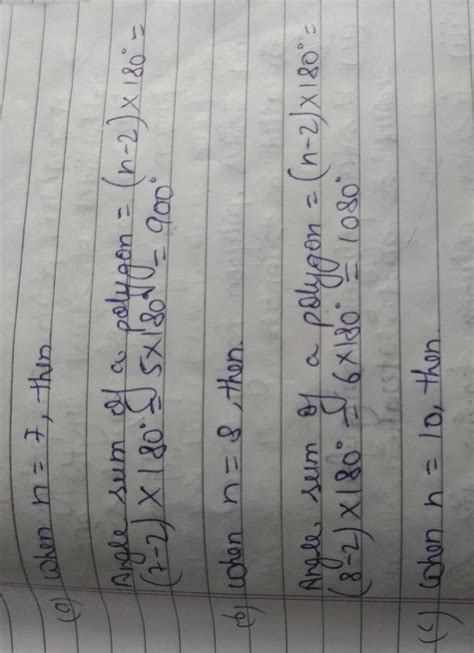 (a) When n = 7, then.
Angle sum of a polygon = (n-2) × 180° =
(7-2) × 180° = 5×180° = 900°
(b) When n = 8, then.
Angle sum of a polygon = (n-2) × 180° =
(8-2) × 180° = 6×180° = 1080°
(c) When n = 10, then.